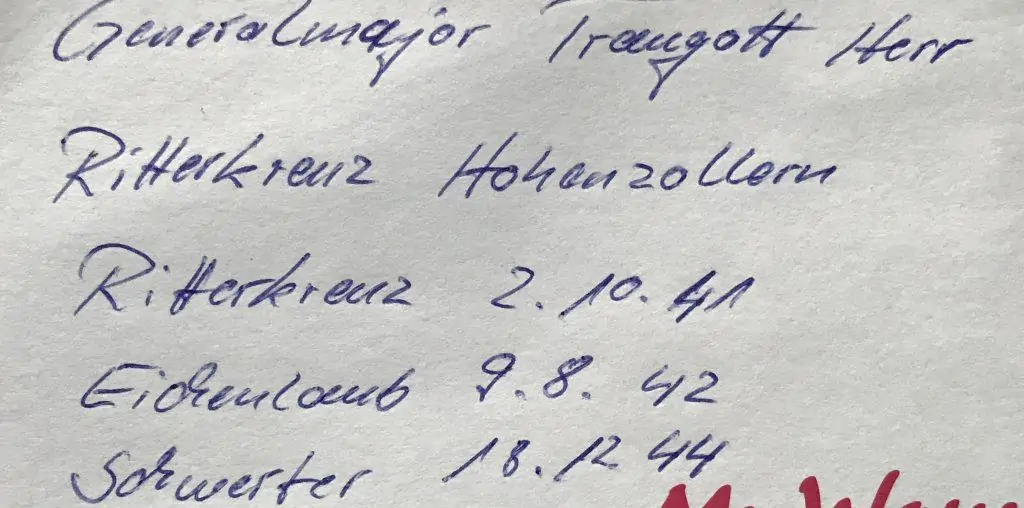 Generalmajor Traugott Herr
Ritterkreuz Hohenzollern
Ritterkreuz 2.10.41
Eichenlaub 9.8.42
Schwerter 18.12 44